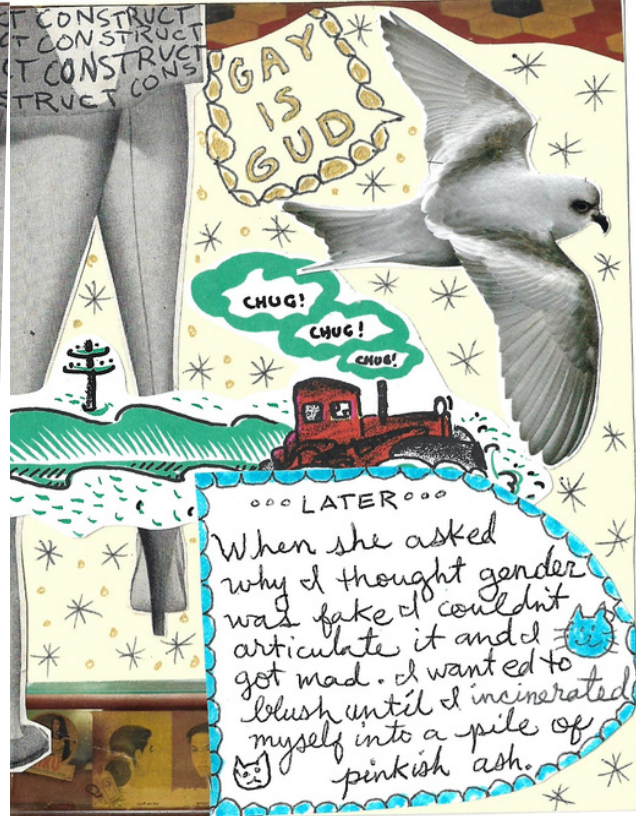 CT CONSTRUCT
CT CONSTRUCT
CT CONSTRUCT
TRUCT CONS
GAY
IS
GUD
CHUG!
CHUG!
CHUG!
°°° LATER °°°
When she asked
why I thought gender
was fake I couldn't
articulate it and I
got mad. I wanted to
blush until I incinerated
myself into a pile of
pinkish ash.